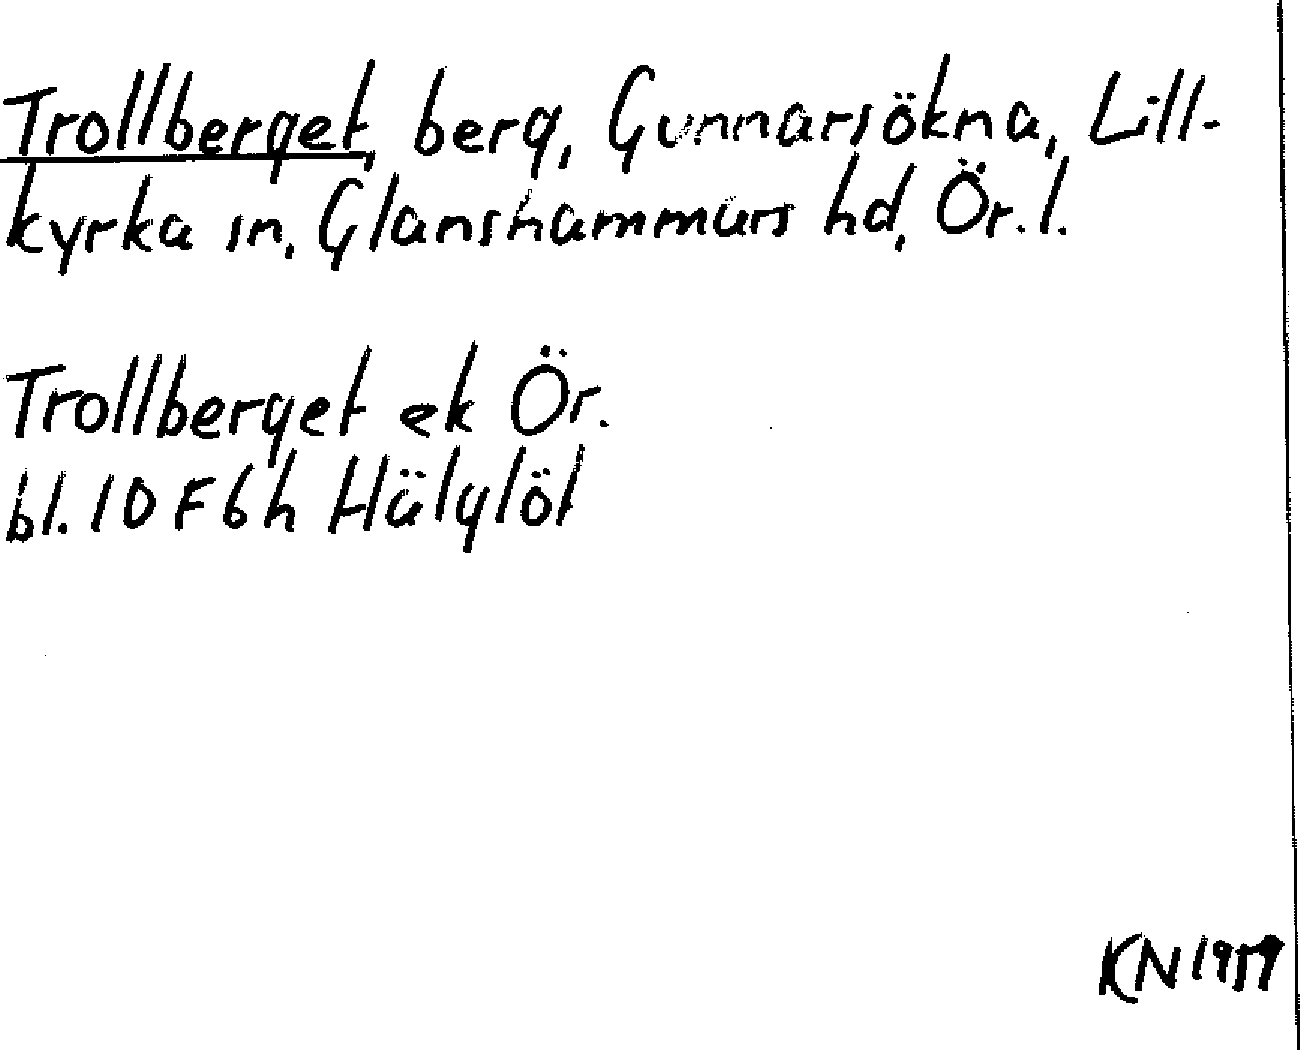 Trollberget, berg, Gunnarsökna, Lill-
kyrka sn, Glanshammars hd, Ör. l.
Trollberget ek Ör.
bl. 10 F 6 h Hälglöt
KN 1959